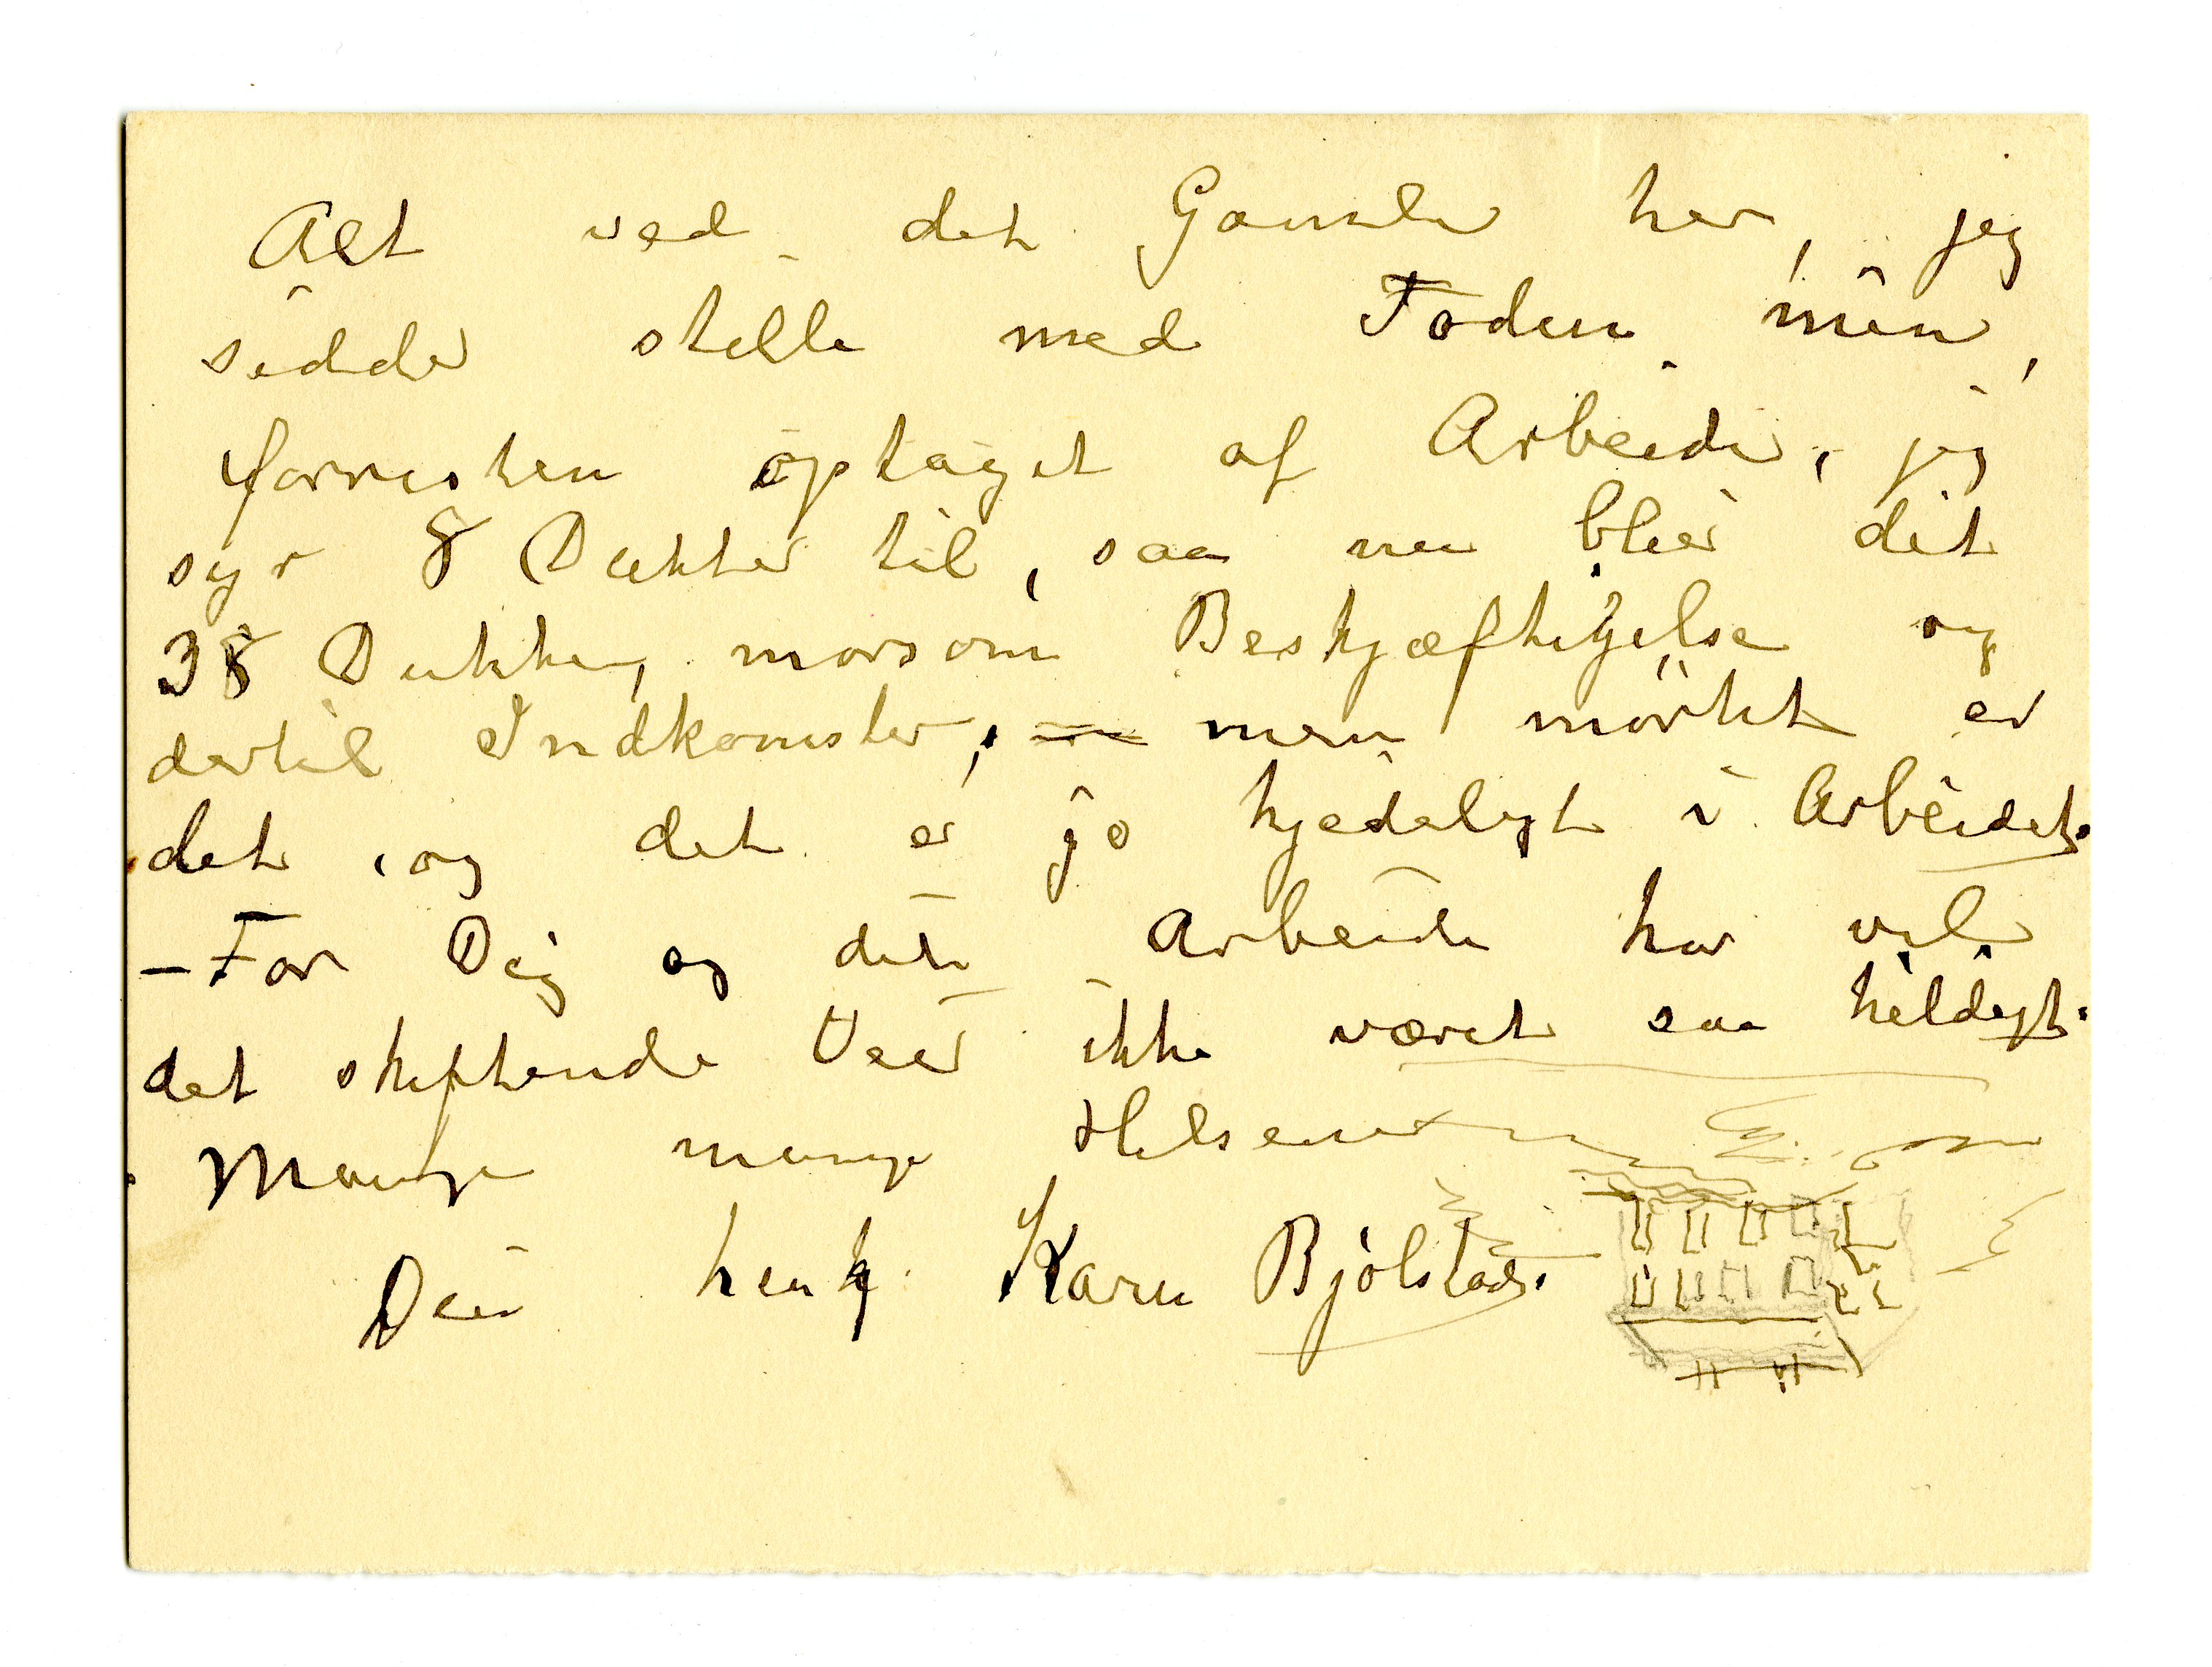 Alt ved det Gamle her, jeg
sidder stille med Foden min,
forresten optaget af Arbeide, jeg
syr 8 Dukker til, saa nu blir det
38 Dukker, morsom Beskjæftigelse og
dertil Indkomster, men mörkt er
det, og det er jo kjedeligt i Arbeidet.
– For Dig og dit Arbeide har vel
det skiftende Veir ikke været saa heldigt.
Mange mange Hilsener
Din heng. Karen Bjølstad.